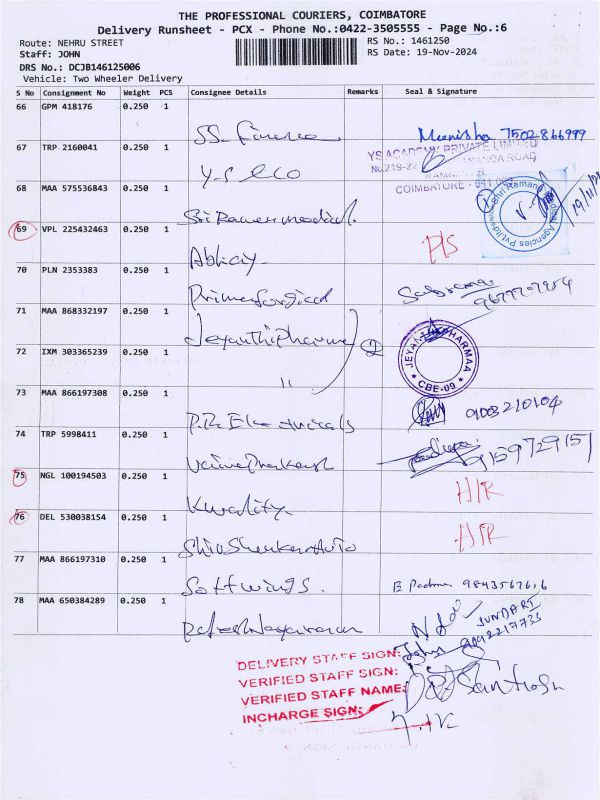 THE PROFESSIONAL COURIERS, COIMBATORE
Delivery Runsheet - PCX - Phone No.:0422-3505555 - Page No.:6
Route: NEHRU STREET RS No.: 1461250
Staff: JOHN RS Date: 19-Nov-2024
DRS No.: DCJB146125006
Vehicle: Two Wheeler Delivery
S No Consignment No Weight PCS Consignee Details Remarks Seal & Signature
66 GPM 418176 0.250 1
SS. Finance Munisha 7502866999
67 TRP 2160041 0.250 1 YS ACADEMY PRIVATE LIMITED
Y-S ROAD
68 MAA 575536843 0.250 1 COIMBATORE - 641
Sri Ramani Agencies Pvt.Ltd 19/11/
69 VPL 225432463 0.250 1 P/S
70 PLN 2353383 0.250 1
Prime Surgical
71 MAA 868332197 0.250 1
Jeyanthi Pharma 2 JEYANTHI PHARMAA
72 IXM 303365239 0.250 1 CBE-09
"
73 MAA 866197308 0.250 1
P.R. Electricals 9003210104
74 TRP 5998411 0.250 1
9159729157
75 NGL 100194503 0.250 1 H/R
Kwality
76 DEL 530038154 0.250 1 H/R
Shiva Shankar Auto
77 MAA 866197310 0.250 1
Softwings. 9843567616
78 MAA 650384289 0.250 1
SUNDARI
9842217735
DELIVERY STAFF SIGN:
VERIFIED STAFF SIGN:
VERIFIED STAFF NAME: Santhosh
INCHARGE SIGN: